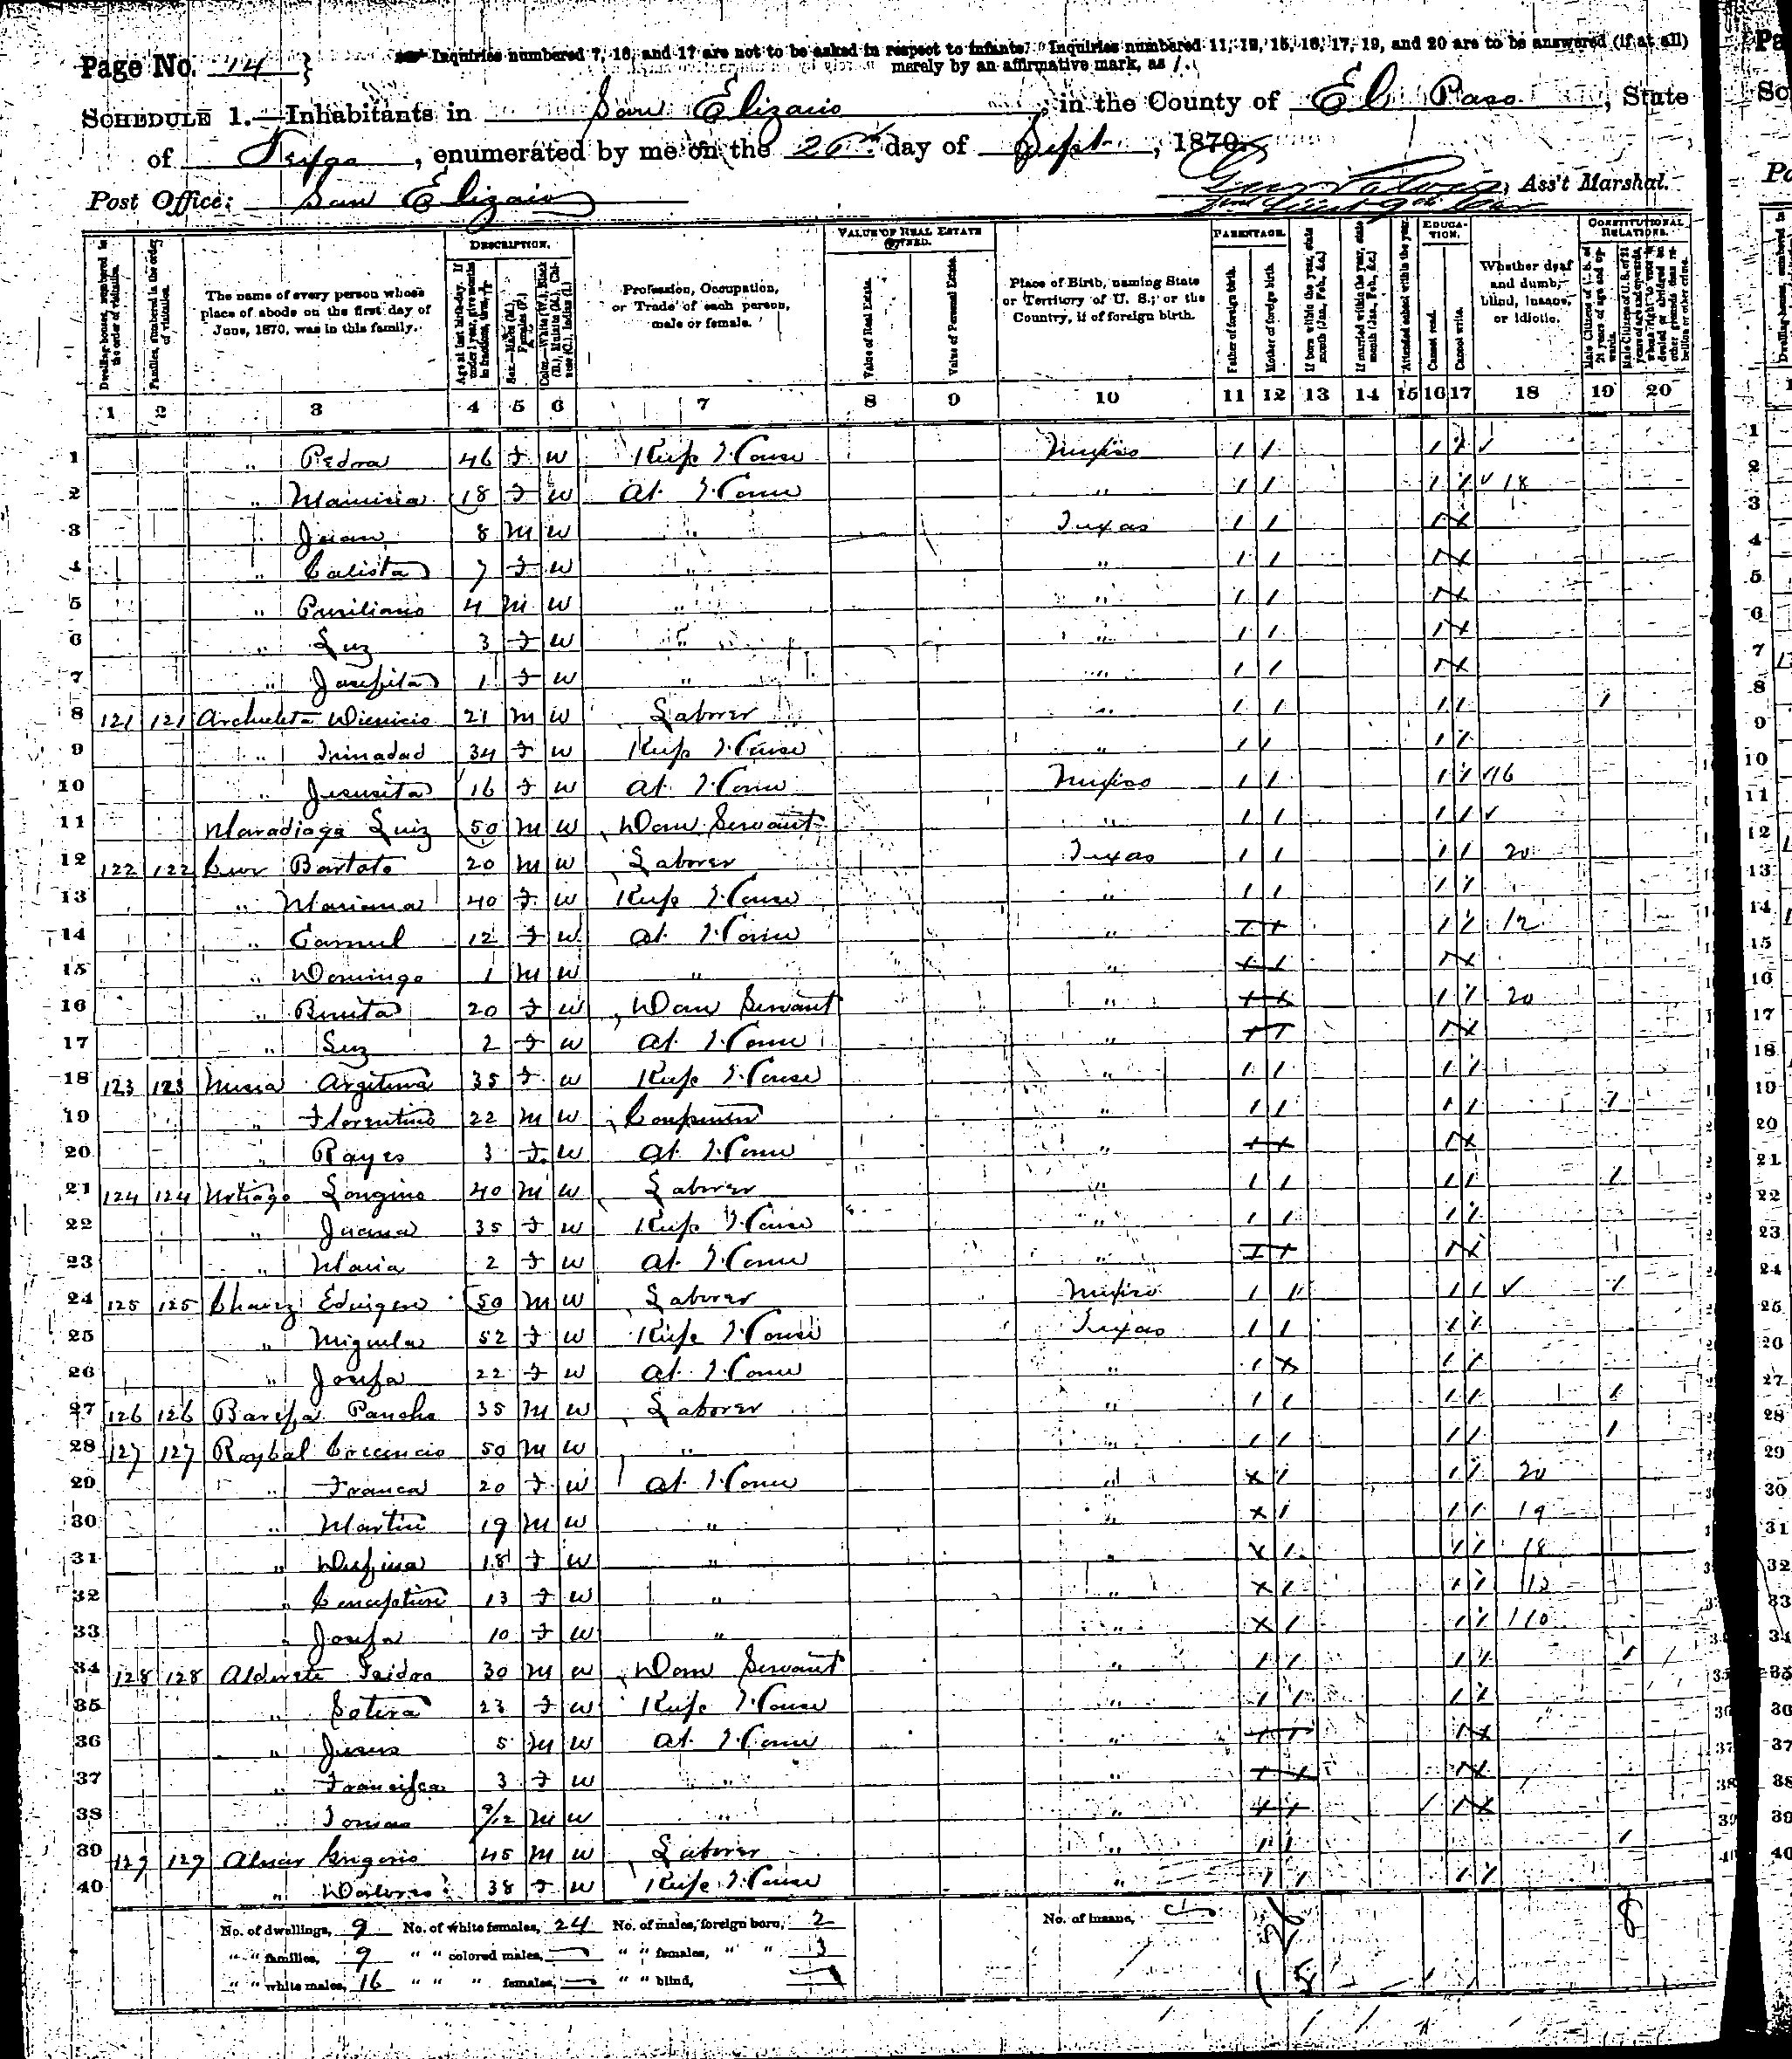 Page No. 14 } Inquiries numbered 7, 16, and 17 are not to be asked in respect to infants. Inquiries numbered 11, 12, 15, 16, 17, 19, and 20 are to be answered (if at all)
merely by an affirmative mark, as /.
SCHEDULE 1.—Inhabitants in San Elizario, in the County of El Paso, State
of Texas, enumerated by me on the 26th day of Sept, 1870.
Post Office: San Elizario Ass't Marshal.
DESCRIPTION. VALUE OF REAL ESTATE OWNED. PARENTAGE. EDUCATION. CONSTITUTIONAL RELATIONS.
Dwelling-houses, numbered in the order of visitation.
Families, numbered in the order of visitation.
The name of every person whose place of abode on the first day of June, 1870, was in this family.
Age at last birth-day. If under 1 year, give months in fractions, thus, 3/12
Sex.—Males (M.), Females (F.)
Color.—White (W.), Black (B.), Mulatto (M.), Chinese (C.), Indian (I.)
Profession, Occupation, or Trade of each person, male or female.
Value of Real Estate.
Value of Personal Estate.
Place of Birth, naming State or Territory of U. S.; or the Country, if of foreign birth.
Father of foreign birth.
Mother of foreign birth.
If born within the year, state month (Jan., Feb., &c.)
If married within the year, state month (Jan., Feb., &c.)
Attended school within the year.
Cannot read.
Cannot write.
Whether deaf and dumb, blind, insane, or idiotic.
Male Citizens of U. S. of 21 years of age and upwards.
Male Citizens of U. S. of 21 years of age and upwards, whose right to vote is denied or abridged on other grounds than rebellion or other crime.
1 2 3 4 5 6 7 8 9 10 11 12 13 14 15 16 17 18 19 20
1 " Pedra 46 F W Keeps House Mexico / / / /
2 " 18 F W At Home " / / / / 18
3 " Juan 8 M W " Texas / / / X
4 " Calista 7 F W " " / / / X
5 " 4 M W " " / / / X
6 " Luz 3 F W " " / / / X
7 " Josefita 1 F W " " / / / X
8 121 121 Archuleta 21 M W Laborer " / / / / /
9 " Trinadad 34 F W Keeps House " / / / /
10 " Jesusita 16 F W At Home Mexico / / / / 16
11 Maradiaga Luiz 50 M W Dom Servant " / / / /
12 122 122 20 M W Laborer Texas / / / / 20
13 " Mariana 40 F W Keeps House " / / / /
14 " 12 F W At Home " / / 12
15 " Domingo 1 M W " " / X
16 " Benita 20 F W Dom Servant " / / 20
17 " Luz 2 F W At Home " / X
18 123 123 35 F W Keeps House " / / / /
19 " Florentino 22 M W Carpenter " / / / / /
20 " Rayes 3 F W At Home " / X
21 124 124 Longino 40 M W Laborer " / / / / /
22 " Juana 35 F W Keeps House " / / / /
23 " Maria 2 F W At Home " / X
24 125 125 Chavez 50 M W Laborer Mexico / / / / /
25 " Miguela 52 F W Keeps House Texas / / / /
26 " Josefa 22 F W At Home " / X / /
27 126 126 Pancho 35 M W Laborer " / / / / /
28 127 127 Roybal 50 M W " " / / / / /
29 " Franca 20 F W At Home " X / / / 20
30 " Martin 19 M W " " X / / / 19
31 " 18 F W " " X / / / 18
32 " Conception 13 F W " " X / / / 13
33 " Josefa 10 F W " " X / / / 10
34 128 128 Alderete Isidro 30 M W Dom Servant " / / / / /
35 " Sotera 23 F W Keeps House " / / / /
36 " Jesus 5 M W At Home " / X
37 " Francisca 3 F W " " / X
38 " Tomas 9/12 M W " " / X
39 129 129 Grigorio 45 M W Laborer " / / /
40 " Dolores 38 F W Keeps House " / / / /
No. of dwellings, 9 No. of white females, 24 No. of males, foreign born, 2 No. of insane, 8
" " families, 9 " " colored males, — " " females, " " 3
" " white males, 16 " " " females, — " " blind,